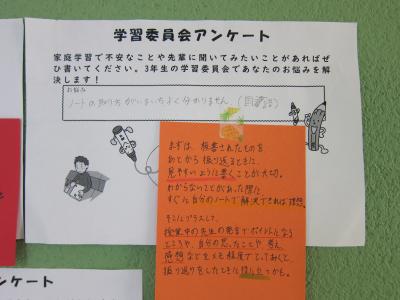 学習委員会アンケート
家庭学習で不安なことや先輩に聞いてみたいことがあればぜ
ひ書いてください。3年生の学習委員会であなたのお悩みを解
決します！
お悩み
ノートの取り方がいまいちよく分かりません。(国語)
まずは、板書されたものを
あとから振り返るときに、
見やすいように書くことが大切。
わからないことがあった際に、
すぐに自分のノートで解決できれば理想。
そこにプラスして、
授業中の先生の発言でポイントになる
ところや、自分の思ったことや考え
感想などをメモ程度でとっておくと
振り返りをしたときに
アンケート